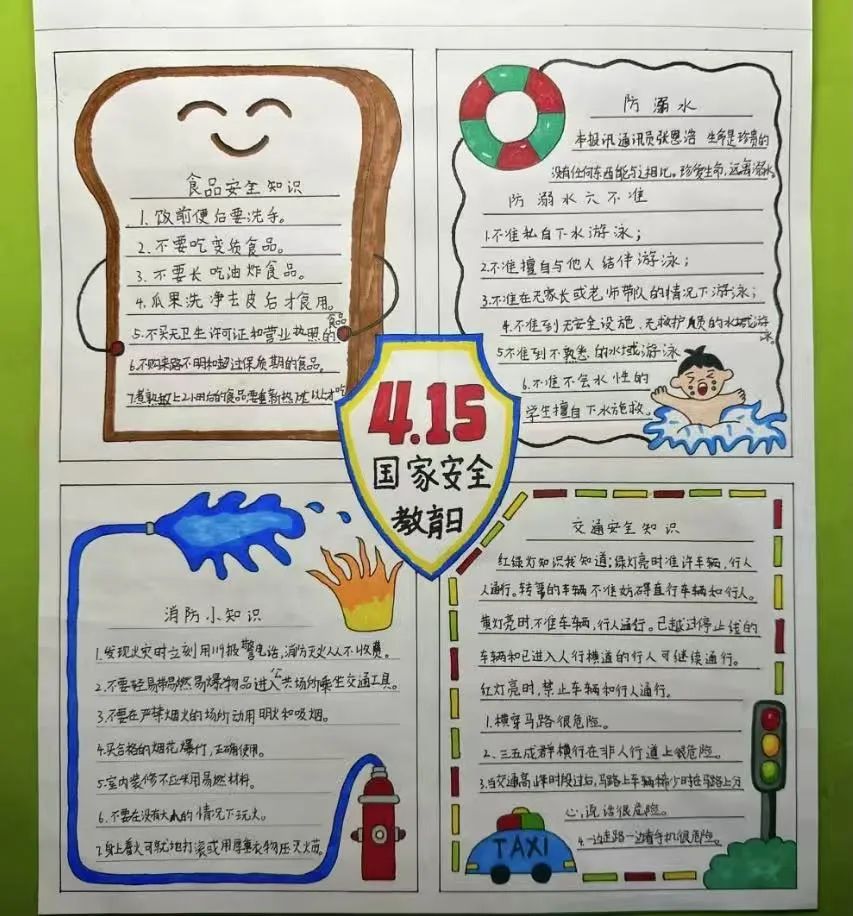 食品安全知识
1.饭前便后要洗手。
2.不要吃变质食品。
3.不要长吃油炸食品。
4.瓜果洗净去皮后才食用。
5.不买无卫生许可证和营业执照的食品
6.不购来路不明和超过保质期的食品。
7.煮熟放上2小时后的食品要重新热才吃
防溺水
本报讯通讯员张思浩 生命是珍贵的
没有任何东西能与之相比。珍爱生命,远离溺水。
防溺水六不准
1.不准私自下水游泳;
2.不准擅自与他人结伴游泳;
3.不准在无家长或老师带队的情况下游泳;
4.不准到无安全设施、无救护员的水域游泳。
5.不准到不熟悉的水域游泳
6.不准不会水性的
学生擅自下水施救。
4.15
国家安全
教育日
消防小知识
1.发现火灾时立刻用119报警电话,消防灭火人人不收费。
2.不要轻易带易燃易爆物品进入公共场所乘坐交通工具。
3.不要在严禁烟火的场所动用明火和吸烟。
4.买合格的烟花爆竹,正确使用。
5.室内装修不应采用易燃材料。
6.不要在没有大人的情况下玩火。
7.身上着火可就地打滚或用厚重衣物压灭火苗。
交通安全知识
红绿灯知识我知道;绿灯亮时准许车辆,行人
人通行。转弯的车辆不准妨碍直行车辆和行人。
黄灯亮时,不准车辆,行人通行。已越过停止线的
车辆和已进入人行横道的行人可继续通行。
红灯亮时,禁止车辆和行人通行。
1.横穿马路很危险。
2、三五成群横行在非人行道上很危险。
3.当交通高峰时段过后,马路上车辆稀少时在马路上分
心,说话很危险。
4.一边走路一边看手机很危险。
TAXI